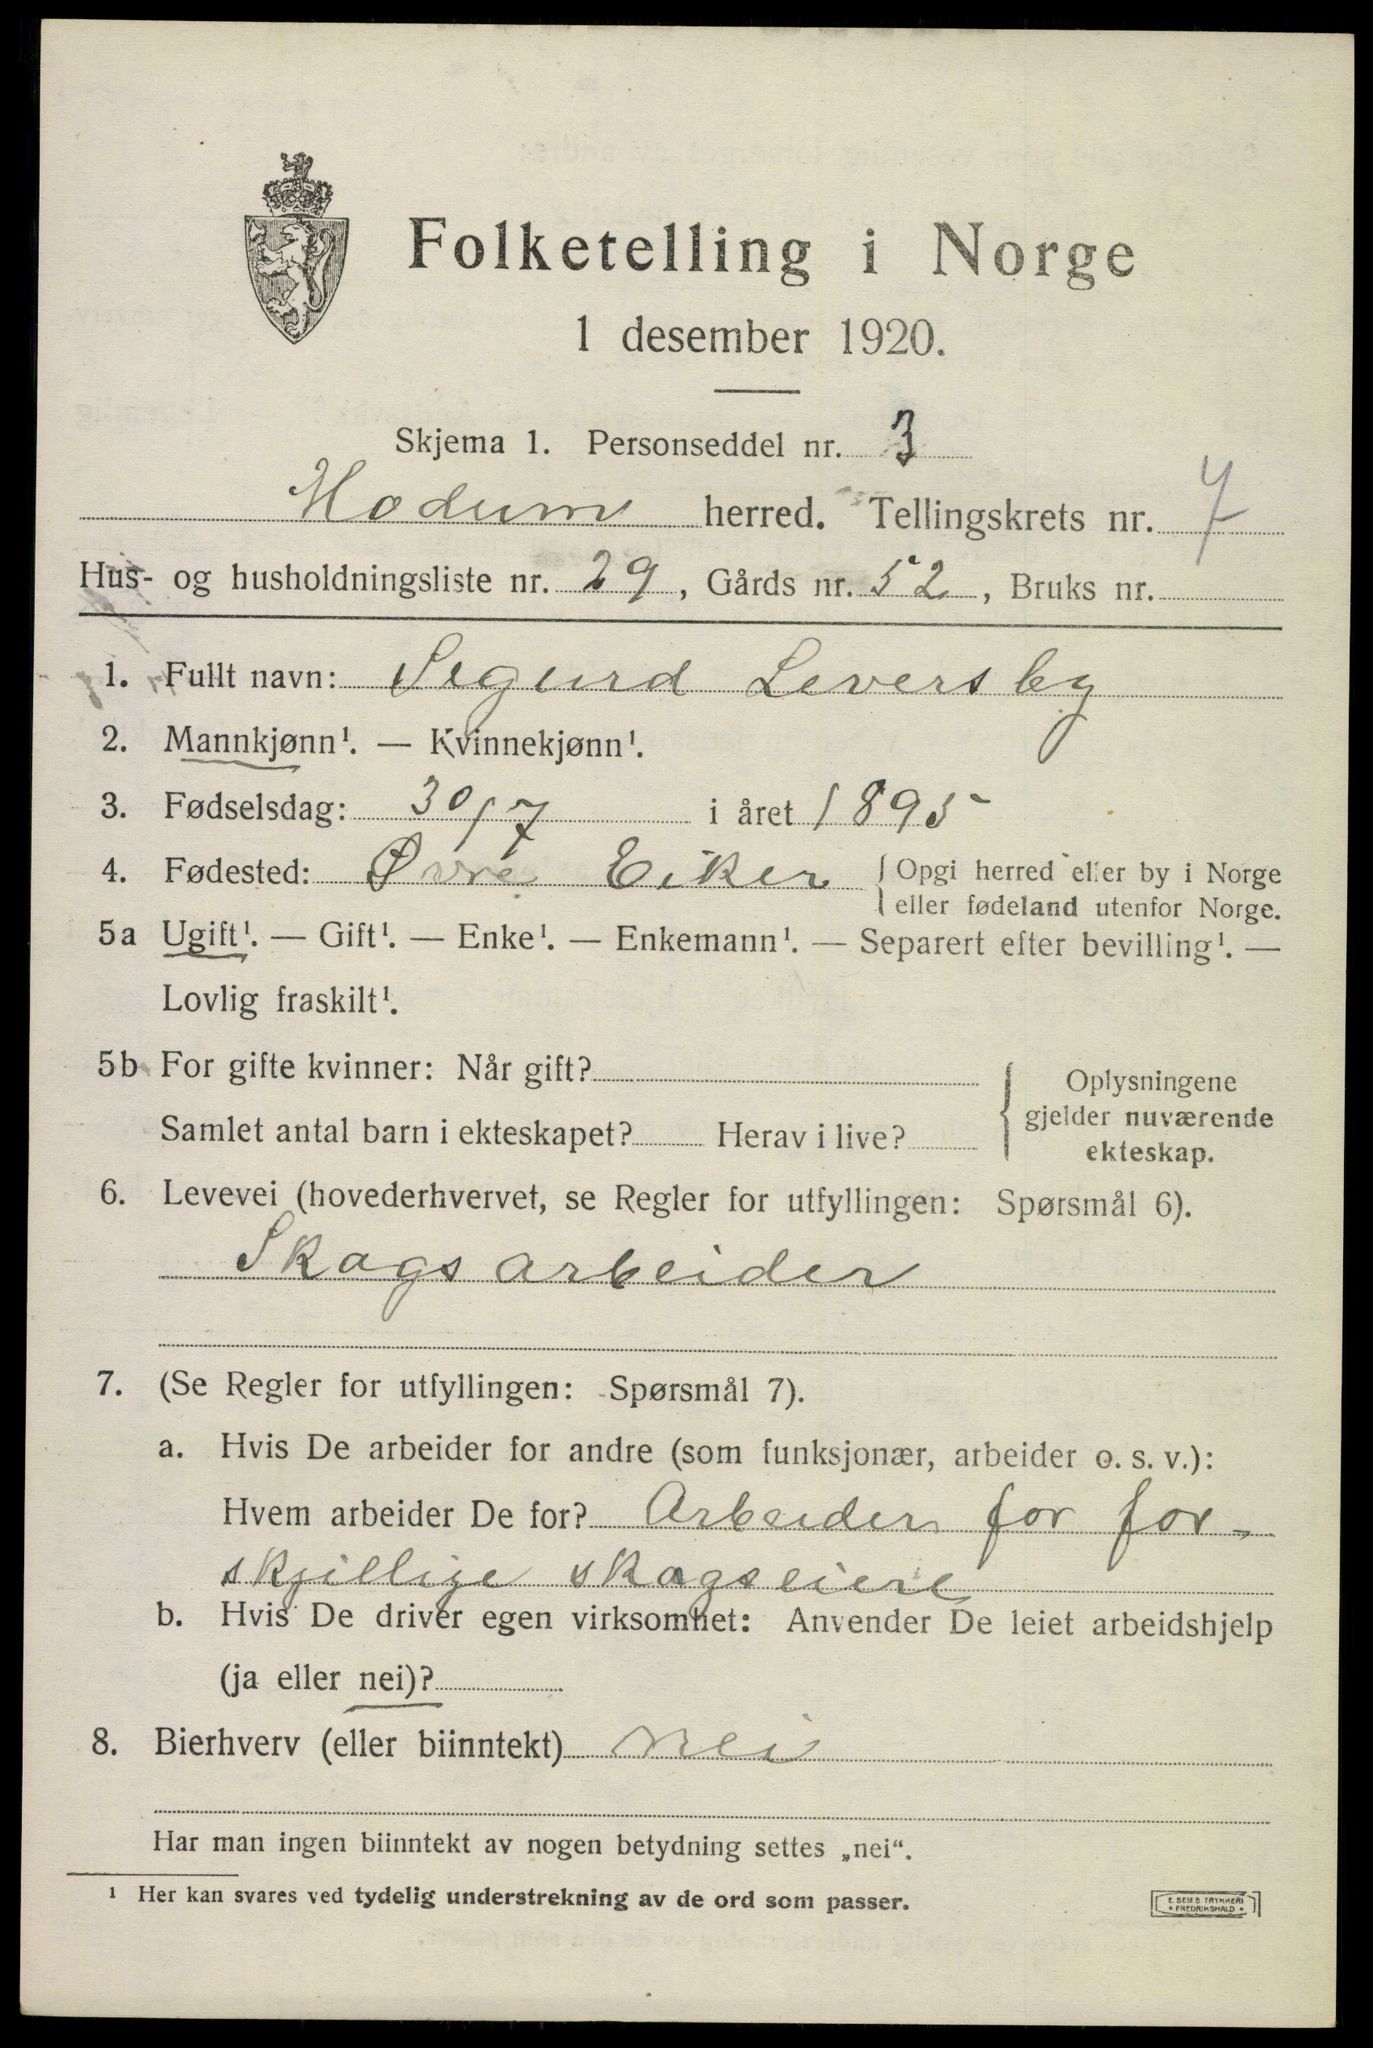 Folketelling i Norge
1 desember 1920.
Skjema 1. Personseddel nr. 3
Modum herred. Tellingskrets nr. 7
Hus- og husholdningsliste nr. 29, Gårds nr. 52, Bruks nr.
1. Fullt navn: Sigurd Leversby
2. Mannkjønn¹. — Kvinnekjønn¹.
3. Fødselsdag: 30/7 i året 1895
4. Fødested: Øvre Eiker { Opgi herred eller by i Norge
eller fødeland utenfor Norge.
5a Ugift¹. — Gift¹. — Enke¹. — Enkemann¹. — Separert efter bevilling¹. —
Lovlig fraskilt¹.
5b For gifte kvinner: Når gift?
Samlet antal barn i ekteskapet? Herav i live?
{ Oplysningene
gjelder nuværende
ekteskap.
6. Levevei (hovederhvervet, se Regler for utfyllingen: Spørsmål 6).
Skogsarbeider
7. (Se Regler for utfyllingen: Spørsmål 7).
a. Hvis De arbeider for andre (som funksjonær, arbeider o. s. v.):
Hvem arbeider De for? Arbeider for for-
skjillige skogseiere
b. Hvis De driver egen virksomhet: Anvender De leiet arbeidshjelp
(ja eller nei)?
8. Bierhverv (eller biinntekt) nei
Har man ingen biinntekt av nogen betydning settes „nei“.
¹ Her kan svares ved tydelig understrekning av de ord som passer.
E. SEMS TRYKKERI
• FREDRIKSHALD •